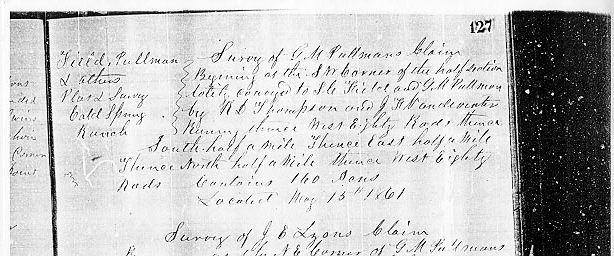 127
Field, Pullman
& others
Plat & Survey
Cold Spring
Ranch
Survey of G M Pullmans Claim
Begining at the S W Corner of the half Section
lately conveyed to S Field and G M Pullman
by R D Thompson and J H Vandeventer
Runing thence West Eighty Rods thence
South half a Mile Thence East half a Mile
Thence North half a Mile thence West Eighty
Rods Contains 160 Acres
Located May 15th 1861
Survey of J E Lyons Claim
N E Corner of G M Pullmans